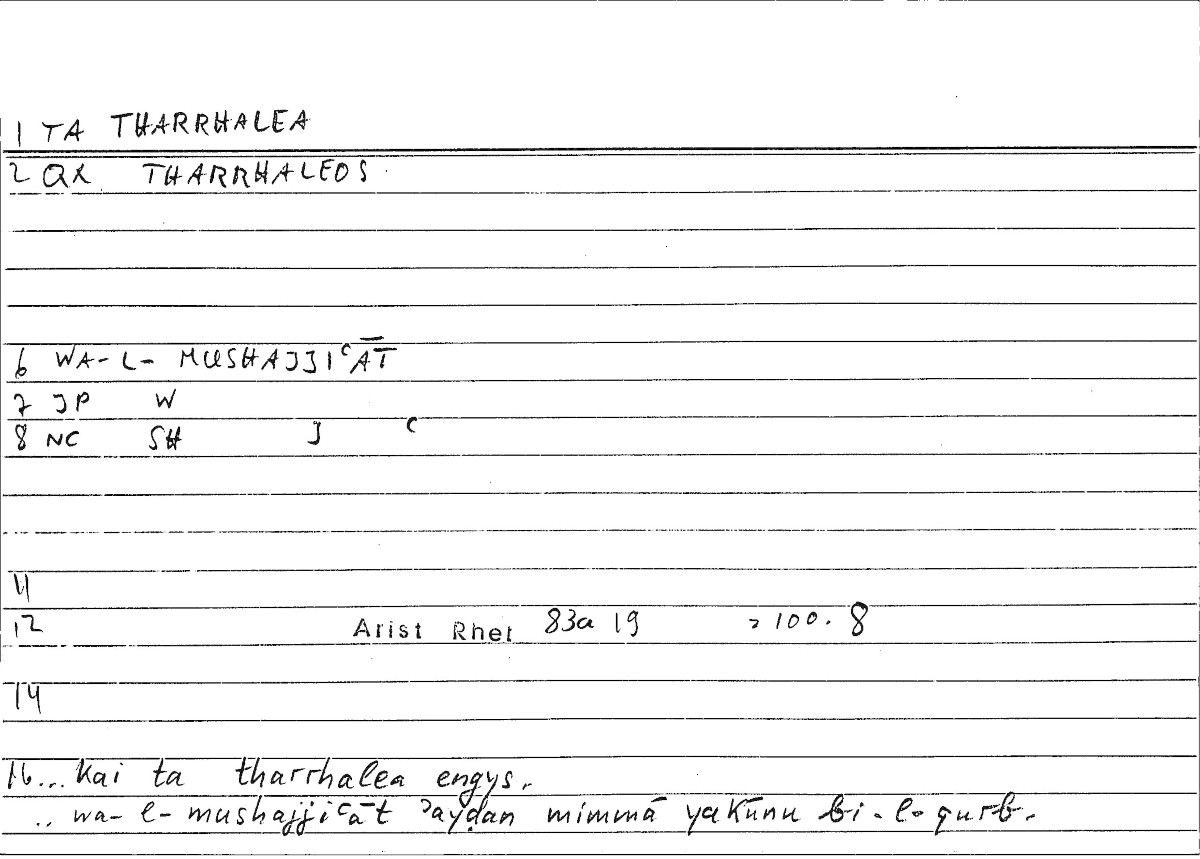 1 TA THARRHALEA
2 QK THARRHALEOS
6 WA-L- MUSHAJJIᶜĀT
7 JP W
8 NC SH J ᶜ
11
12 Arist Rhet 83a 19 = 100.8
14
16... kai ta tharrhalea engys.
.. wa-l-mushajjiᶜāt ʾayḍan mimmā yakūnu bi-l-qurb.